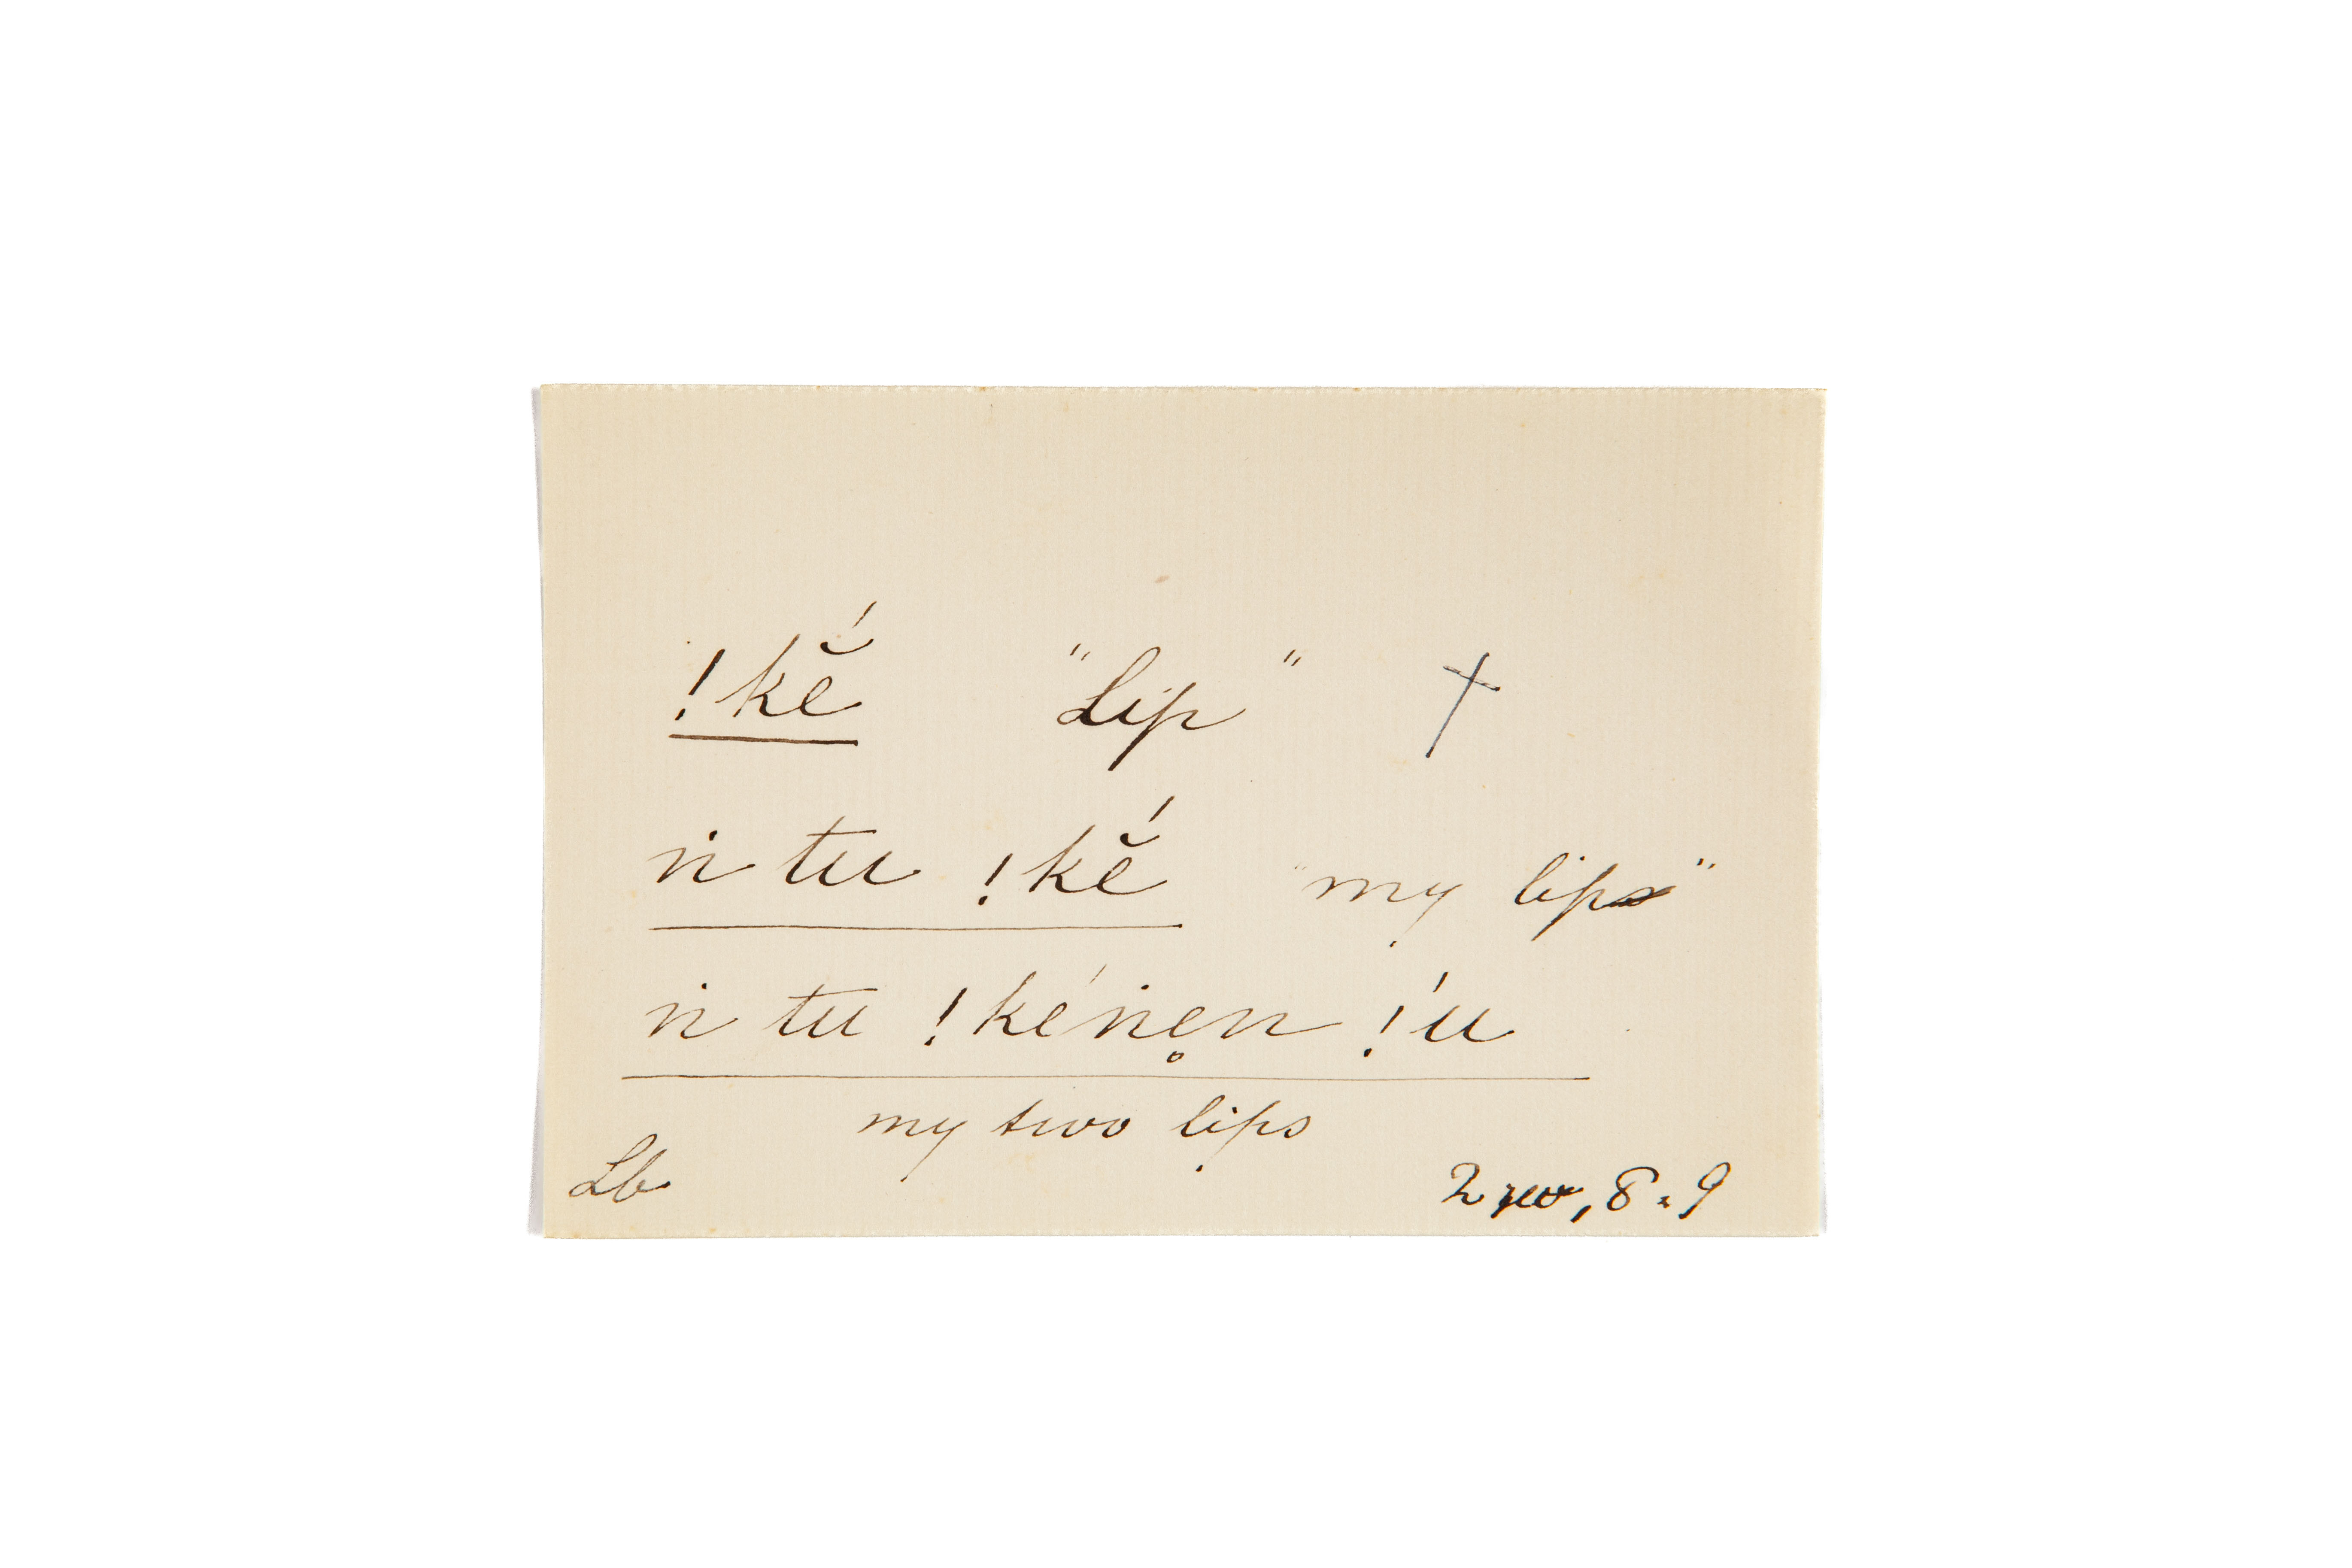 !kĕ́ "Lip" †
ṅ tu !kĕ́ "my lip"
ṅ tu !kéṅe̥n !'u
my two lips
Lb 8.9